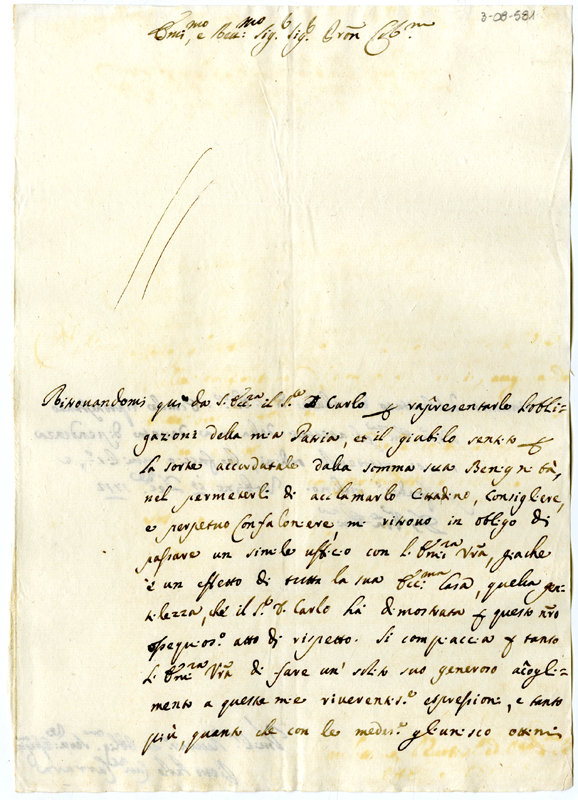 3-08-581
Em:mo, e Rev:mo Sig.r Sig.r Pron Col:mo
Ritrovandomi qui da S. Ecc:za il S.r D Carlo p rapresentarle l'obli-
gazioni della mia Patria, et il giubilo sentito p
la sorte accordatale dalla somma sua Benignità,
nel permeterli di acclamarlo Cittadino, Consigliere,
e perpetuo Confaloniere, mi ritrovo in obligo di
passare un simile uffitio con l'Em:za Vra, giache
è un effetto di tutta la sua Ecc:ma Casa, quella gen-
tilezza, che il S.r D. Carlo hà dimostrata p questo nro
ossequios.o atto di rispetto. Si compiaccia p tanto
l'Em:za Vra di fare un' solito suo generoso accogli-
mento a queste mie riverentis.e espressioni, e tanto
più quanto che con le medes.e gl'unisco ottimi